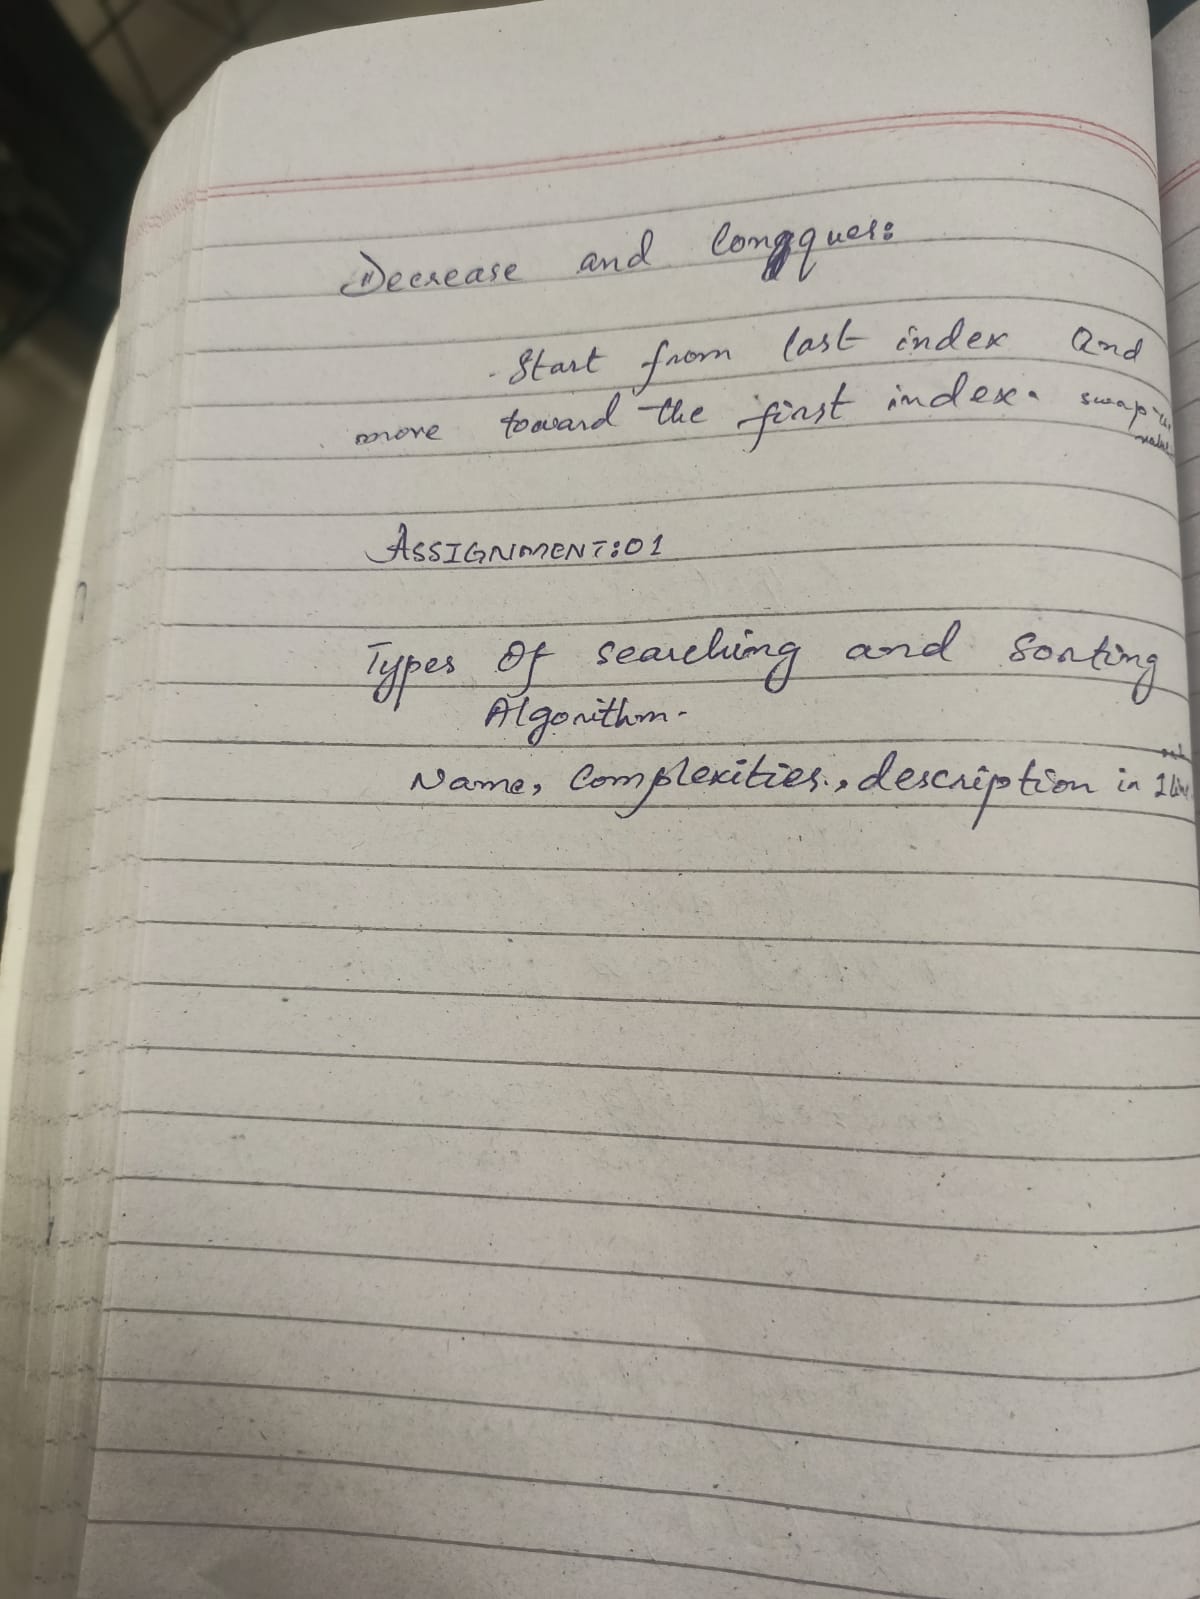 Decrease and Conqquer:
. Start from last index and
move toward the first index. swap
ASSIGNMENT:01
Types Of searching and Sorting
Algorithm.
Name, Complexities, description in 1 line